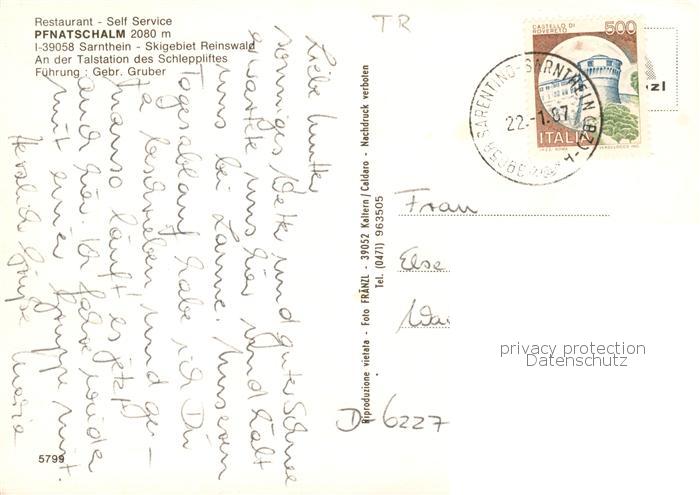 Restaurant - Self Service
PFNATSCHALM 2080 m
I-39058 Sarnthein - Skigebiet Reinswald
An der Talstation des Schleppliftes
Führung: Gebr. Gruber
Liebe Mutter
sonniges Wetter und guter Schnee
erwartete uns hier und hält
uns bei Laune. Unseren
Tagesablauf habe ich Dir
ja beschrieben und ge-
nauso läuft es jetzt
auch hier. Ich fahre wieder
mit einer Gruppe mit.
Herzliche Grüße Maria
5799
Riproduzione vietata - Foto FRÄNZL - 39052 Kaltern/Caldaro - Nachdruck verboten
Tel. (0471) 963505
TR
CASTELLO DI
ROVERETO
500
ITALIA
39058 SARENTINO-SARNTHEIN (BZ)
22-1.87
Frau
Else
Wai
D-6227
privacy protection
Datenschutz